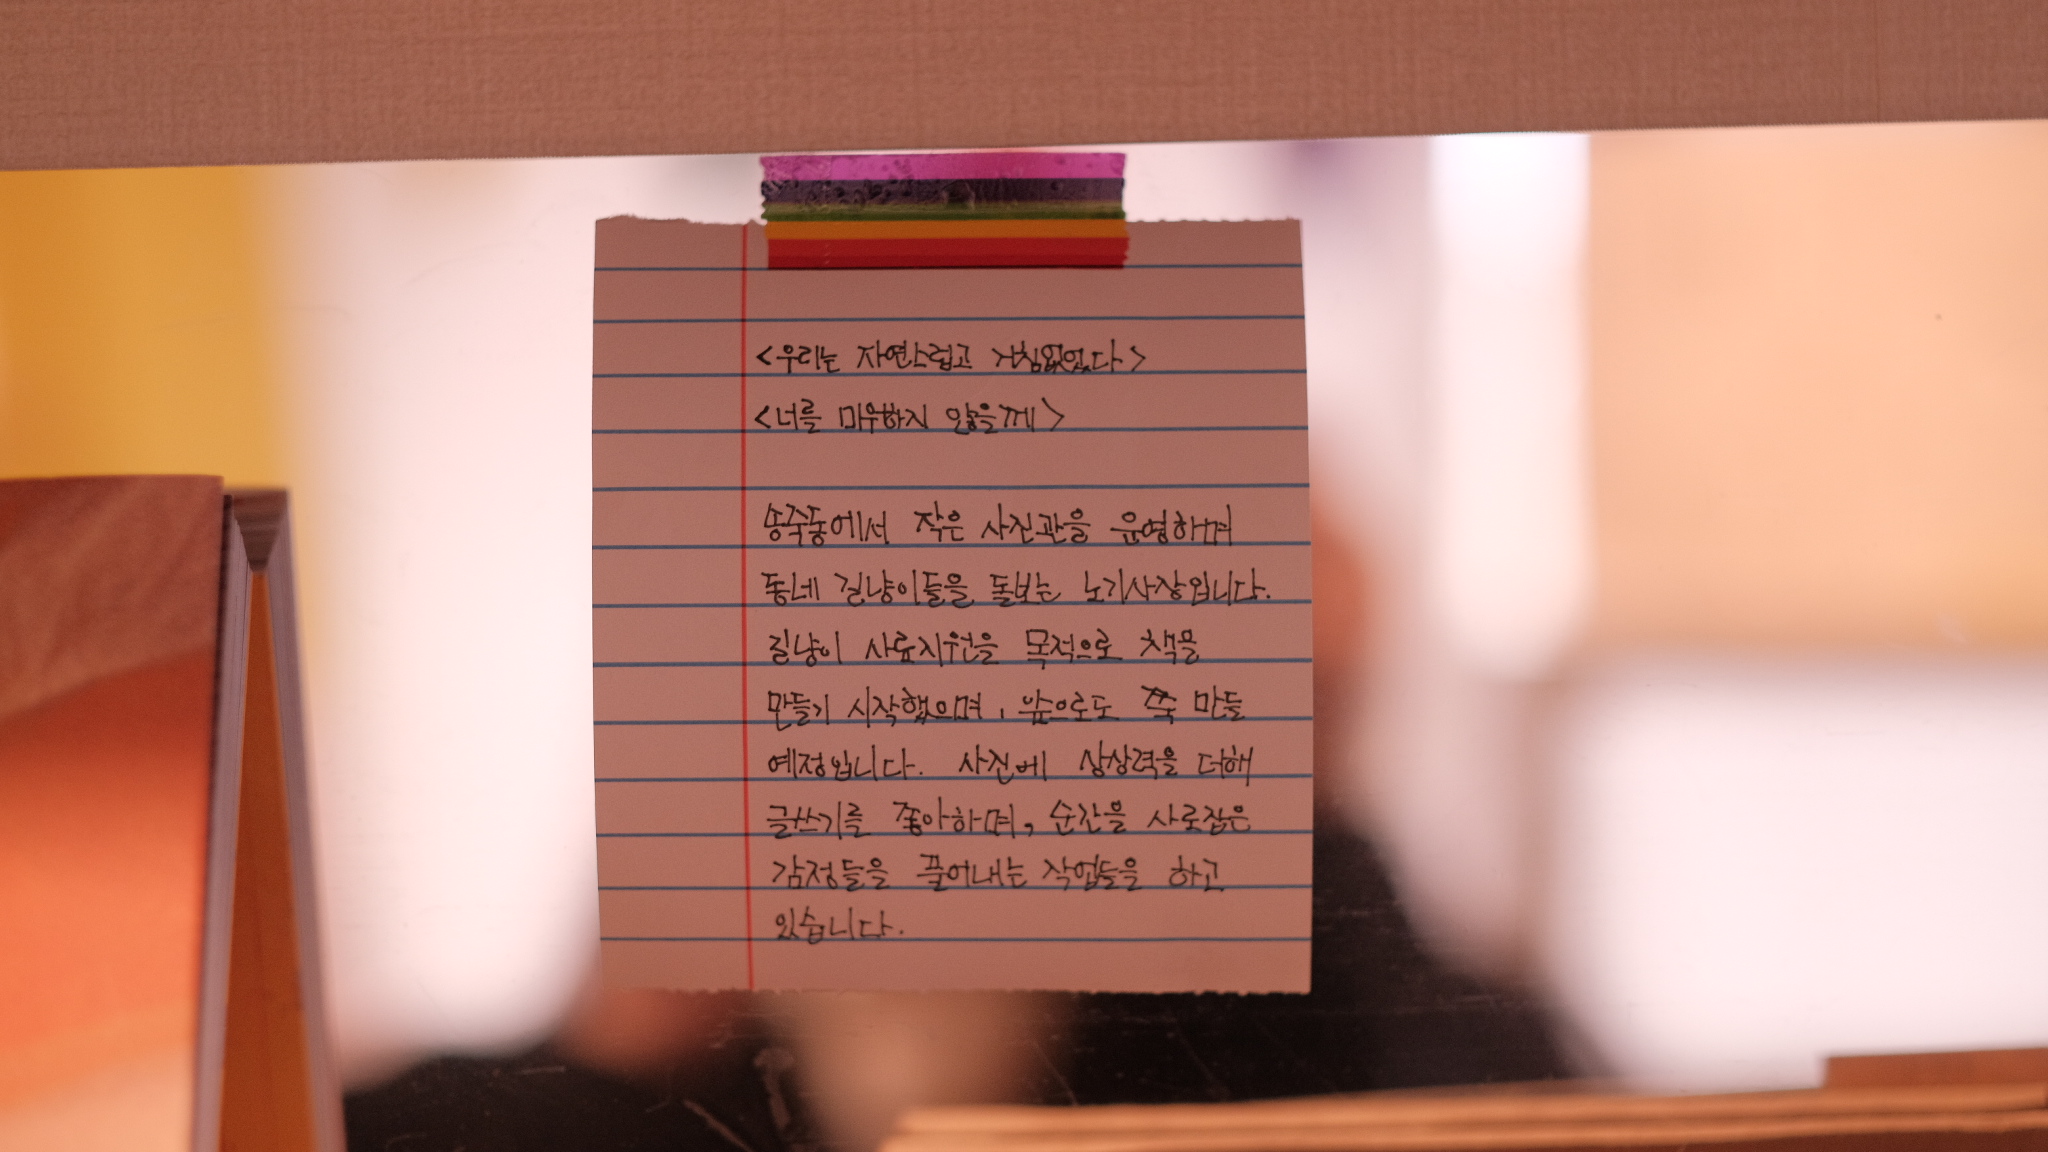 <우리는 자연스럽고 거침없었다>
<너를 미워하지 않을께>
송죽동에서 작은 사진관을 운영하며
동네 길냥이들을 돌보는 노기사장입니다.
길냥이 사료지원을 목적으로 책을
만들기 시작했으며, 앞으로도 쭉 만들
예정입니다. 사진에 상상력을 더해
글쓰기를 좋아하며, 순간을 사로잡은
감정들을 풀어내는 작업들을 하고
있습니다.